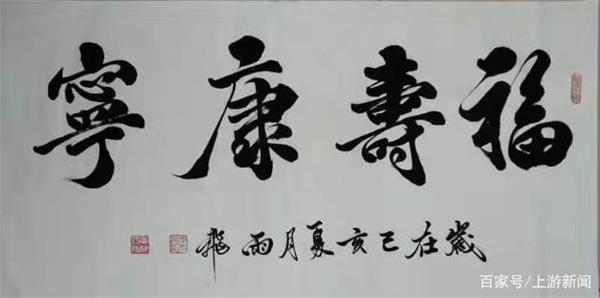 福壽康寧
歲在己亥夏月雨飛
百家号/上游新闻